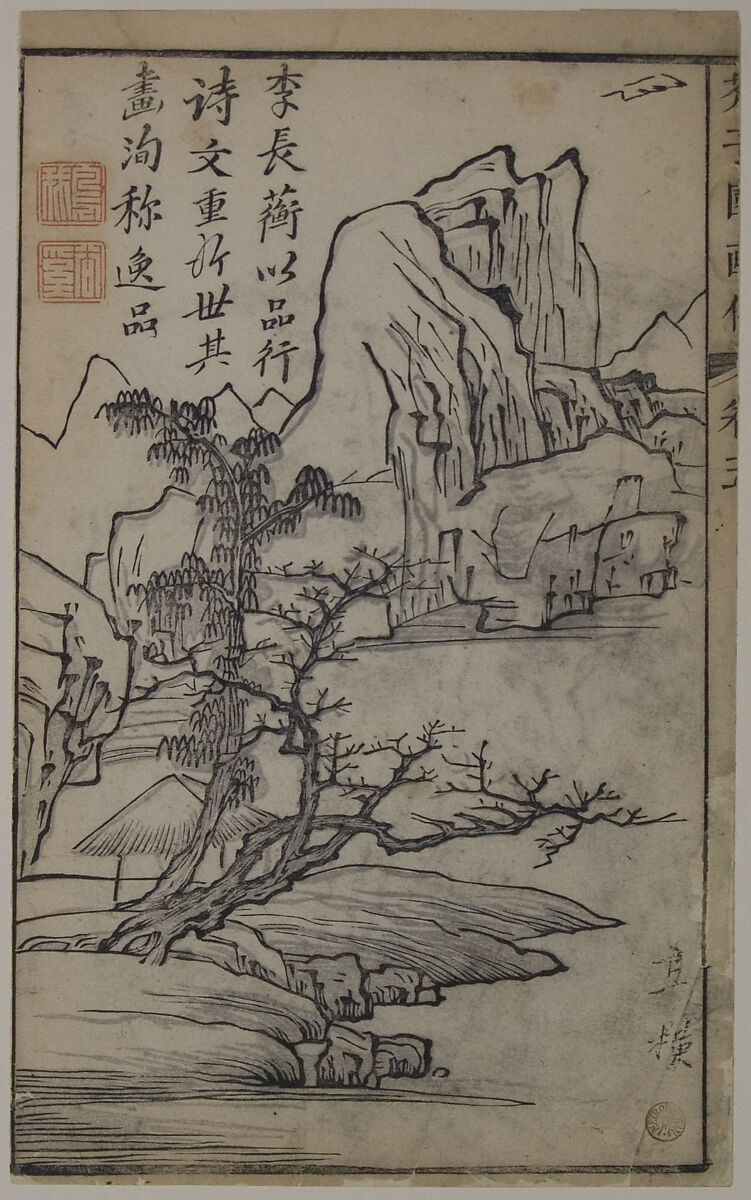 李長蘅以品行
詩文重於世其
畫洵称逸品
芥子園畫傳
卷五